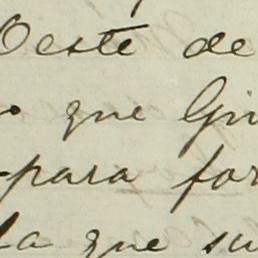 Oeste de
que Gu
para for
la que su